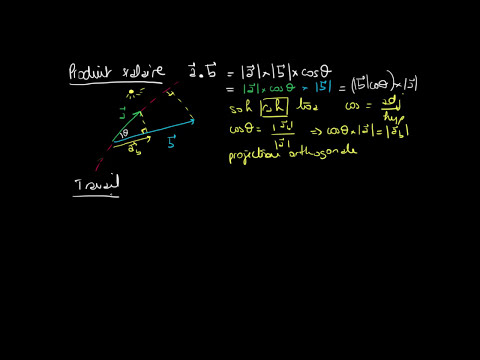 Produit scalaire
a⃗ . b⃗ = |a⃗| × |b⃗| × cosθ
= |a⃗| × cosθ × |b⃗| = (|b⃗| cosθ) × |a⃗|
soh cah toa cos = adj/hyp
cosθ = |a⃗b|/|a⃗| ⇒ cosθ × |a⃗| = |a⃗b|
projection orthogonale
a⃗
θ
a⃗b
b⃗
Travail